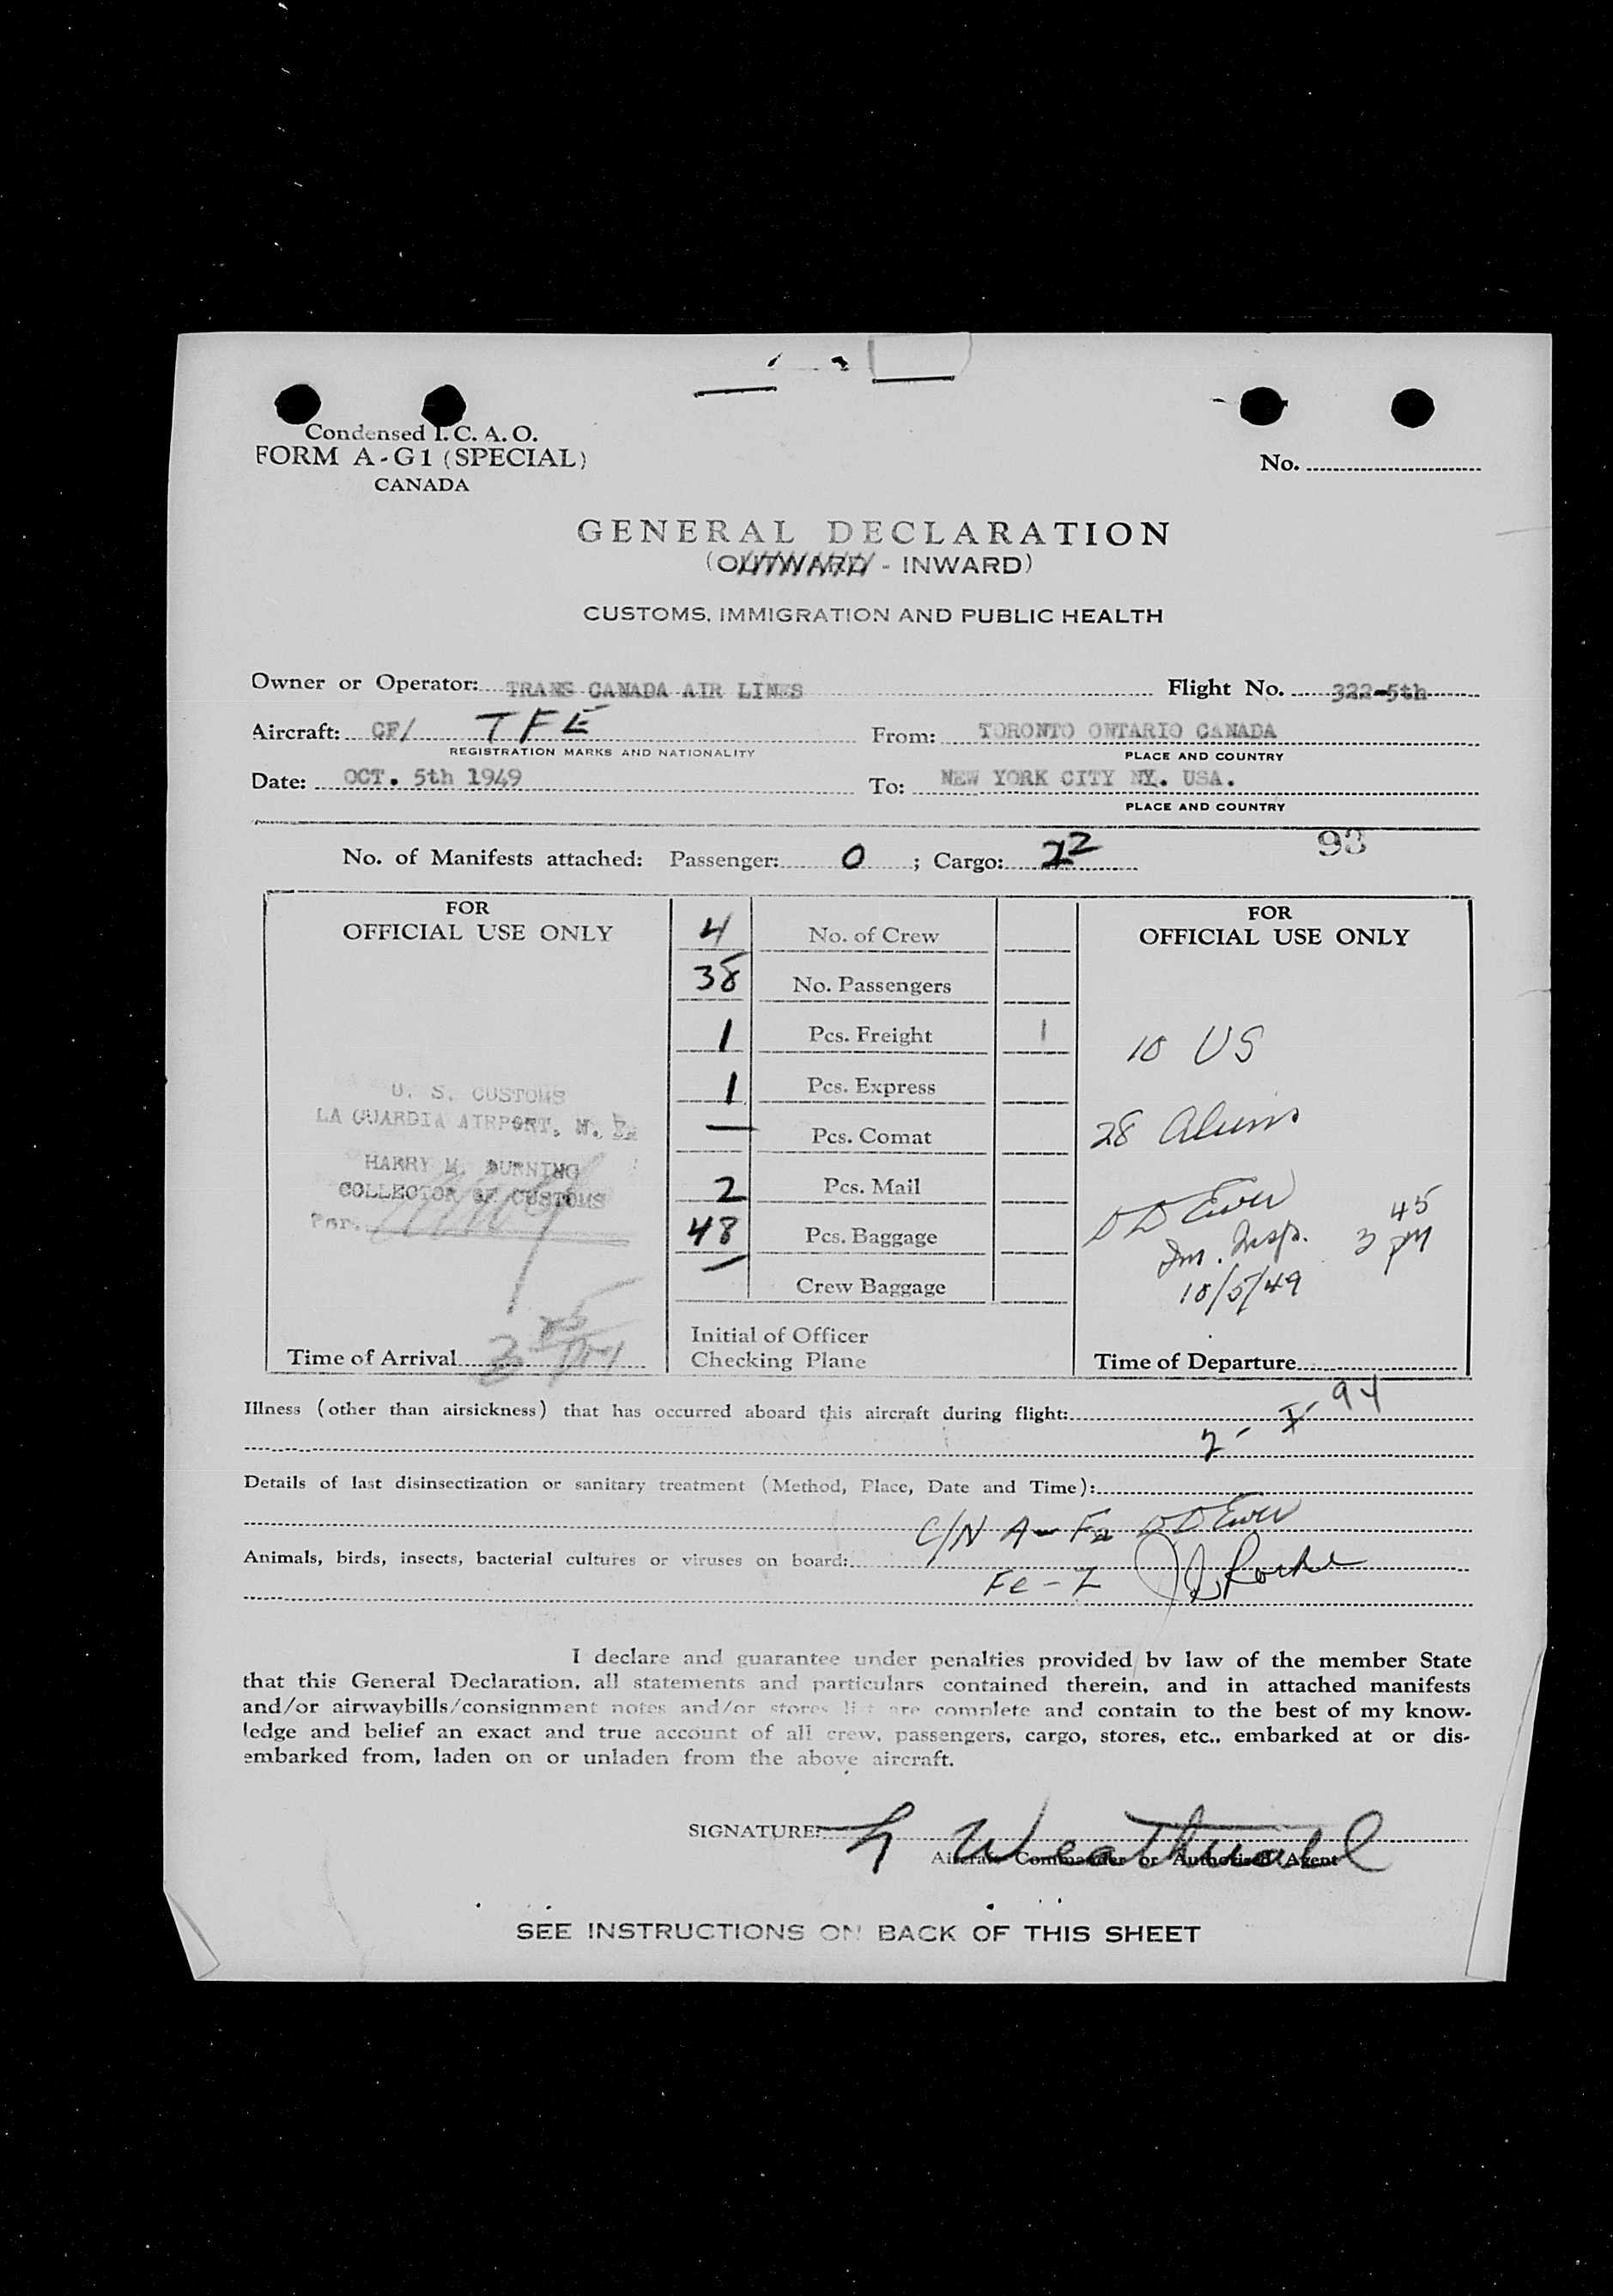 Condensed I. C. A. O.
FORM A-G1 (SPECIAL)
CANADA
No.
GENERAL DECLARATION
(OUTWARD - INWARD)
CUSTOMS, IMMIGRATION AND PUBLIC HEALTH
Owner or Operator: TRANS CANADA AIR LINES Flight No. 322-5th
Aircraft: CF/ TFE From: TORONTO ONTARIO CANADA
REGISTRATION MARKS AND NATIONALITY PLACE AND COUNTRY
Date: OCT. 5th 1949 To: NEW YORK CITY NY. USA.
PLACE AND COUNTRY
93
No. of Manifests attached: Passenger: 0 ; Cargo: 2
FOR
OFFICIAL USE ONLY
U. S. CUSTOMS
LA GUARDIA AIRPORT, N. Y.
HARRY M. DURNING
COLLECTOR OF CUSTOMS
Per.
Time of Arrival 3 25 PM
4 No. of Crew
38 No. Passengers
1 Pcs. Freight 1
1 Pcs. Express
— Pcs. Comat
2 Pcs. Mail
48 Pcs. Baggage
— Crew Baggage
Initial of Officer
Checking Plane
FOR
OFFICIAL USE ONLY
10 US
28 Aliens
DD Ewer
Im. Insp. 3 45 PM
10/5/49
Time of Departure
Illness (other than airsickness) that has occurred aboard this aircraft during flight:
2 - I - 94
Details of last disinsectization or sanitary treatment (Method, Place, Date and Time):
C/N A - Fa DD Ewer
Animals, birds, insects, bacterial cultures or viruses on board:
Fe - Z
I declare and guarantee under penalties provided by law of the member State
that this General Declaration, all statements and particulars contained therein, and in attached manifests
and/or airwaybills/consignment notes and/or stores list are complete and contain to the best of my know-
ledge and belief an exact and true account of all crew, passengers, cargo, stores, etc., embarked at or dis-
embarked from, laden on or unladen from the above aircraft.
SIGNATURE: Weatherall
Aircraft Commander or Authorized Agent
SEE INSTRUCTIONS ON BACK OF THIS SHEET